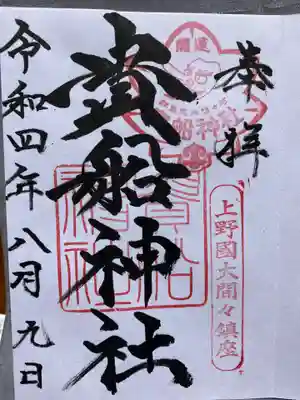 奉拝
開運
貴船神社
上野國大間々鎮座
貴船神社
令和四年八月九日